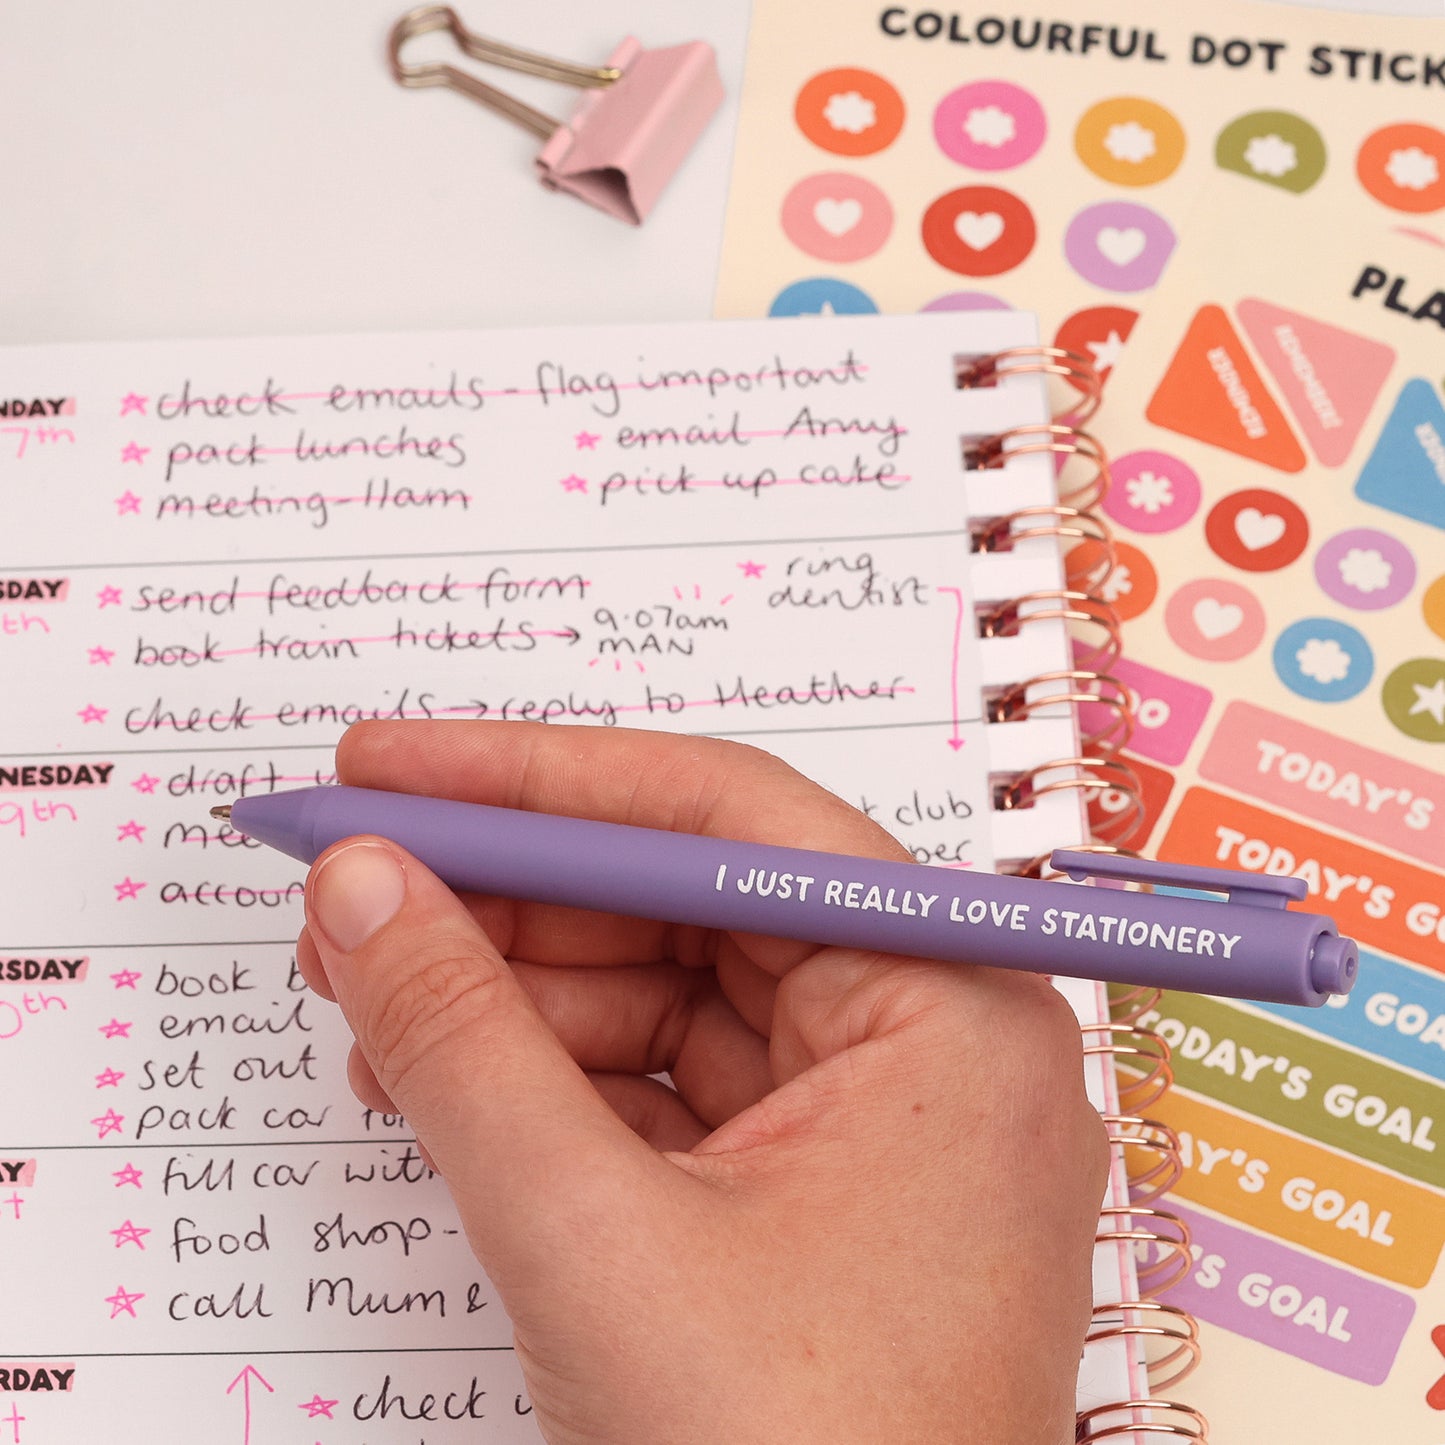 COLOURFUL DOT STICK
PLA
REMINDER
REMINDER
NDAY
7th
☆ check emails - flag important
☆ pack lunches
☆ email Amy
☆ meeting-11am
☆ pick up cake
SDAY
th
☆ send feedback form
☆ ring
dentist
☆ book train tickets → 9.07am
MAN
☆ check emails → reply to Heather
NESDAY
9th
☆ draft
club
☆ mee
ber
☆ accoun
I JUST REALLY LOVE STATIONERY
RSDAY
0th
☆ book b
☆ email
☆ set out
☆ pack car for
AY
st
☆ fill car with
☆ food shop -
☆ call Mum &
RDAY
☆ check
DO
DO
TODAY'S
TODAY'S GO
GOA
TODAY'S GOAL
DAY'S GOAL
AY'S GOAL